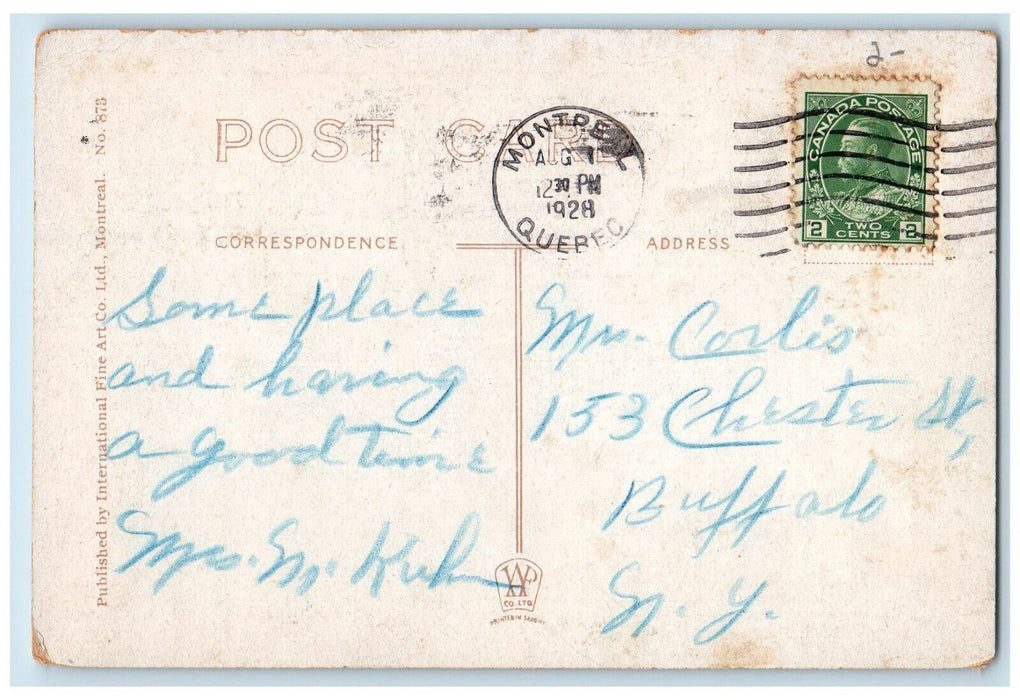 2-
POST CARD
MONTREAL
AUG 1
12 30 PM
1928
QUEBEC
CANADA POSTAGE
2 TWO CENTS 2
CORRESPONDENCE
ADDRESS
Some place
and having
a good time
Mrs. M. Kuhn
Mrs. Corlis
153 Chester St,
Buffalo
N. Y.
Published by International Fine Art Co. Ltd., Montreal. No. 873
CO. LTD.
PRINTED IN SAXONY